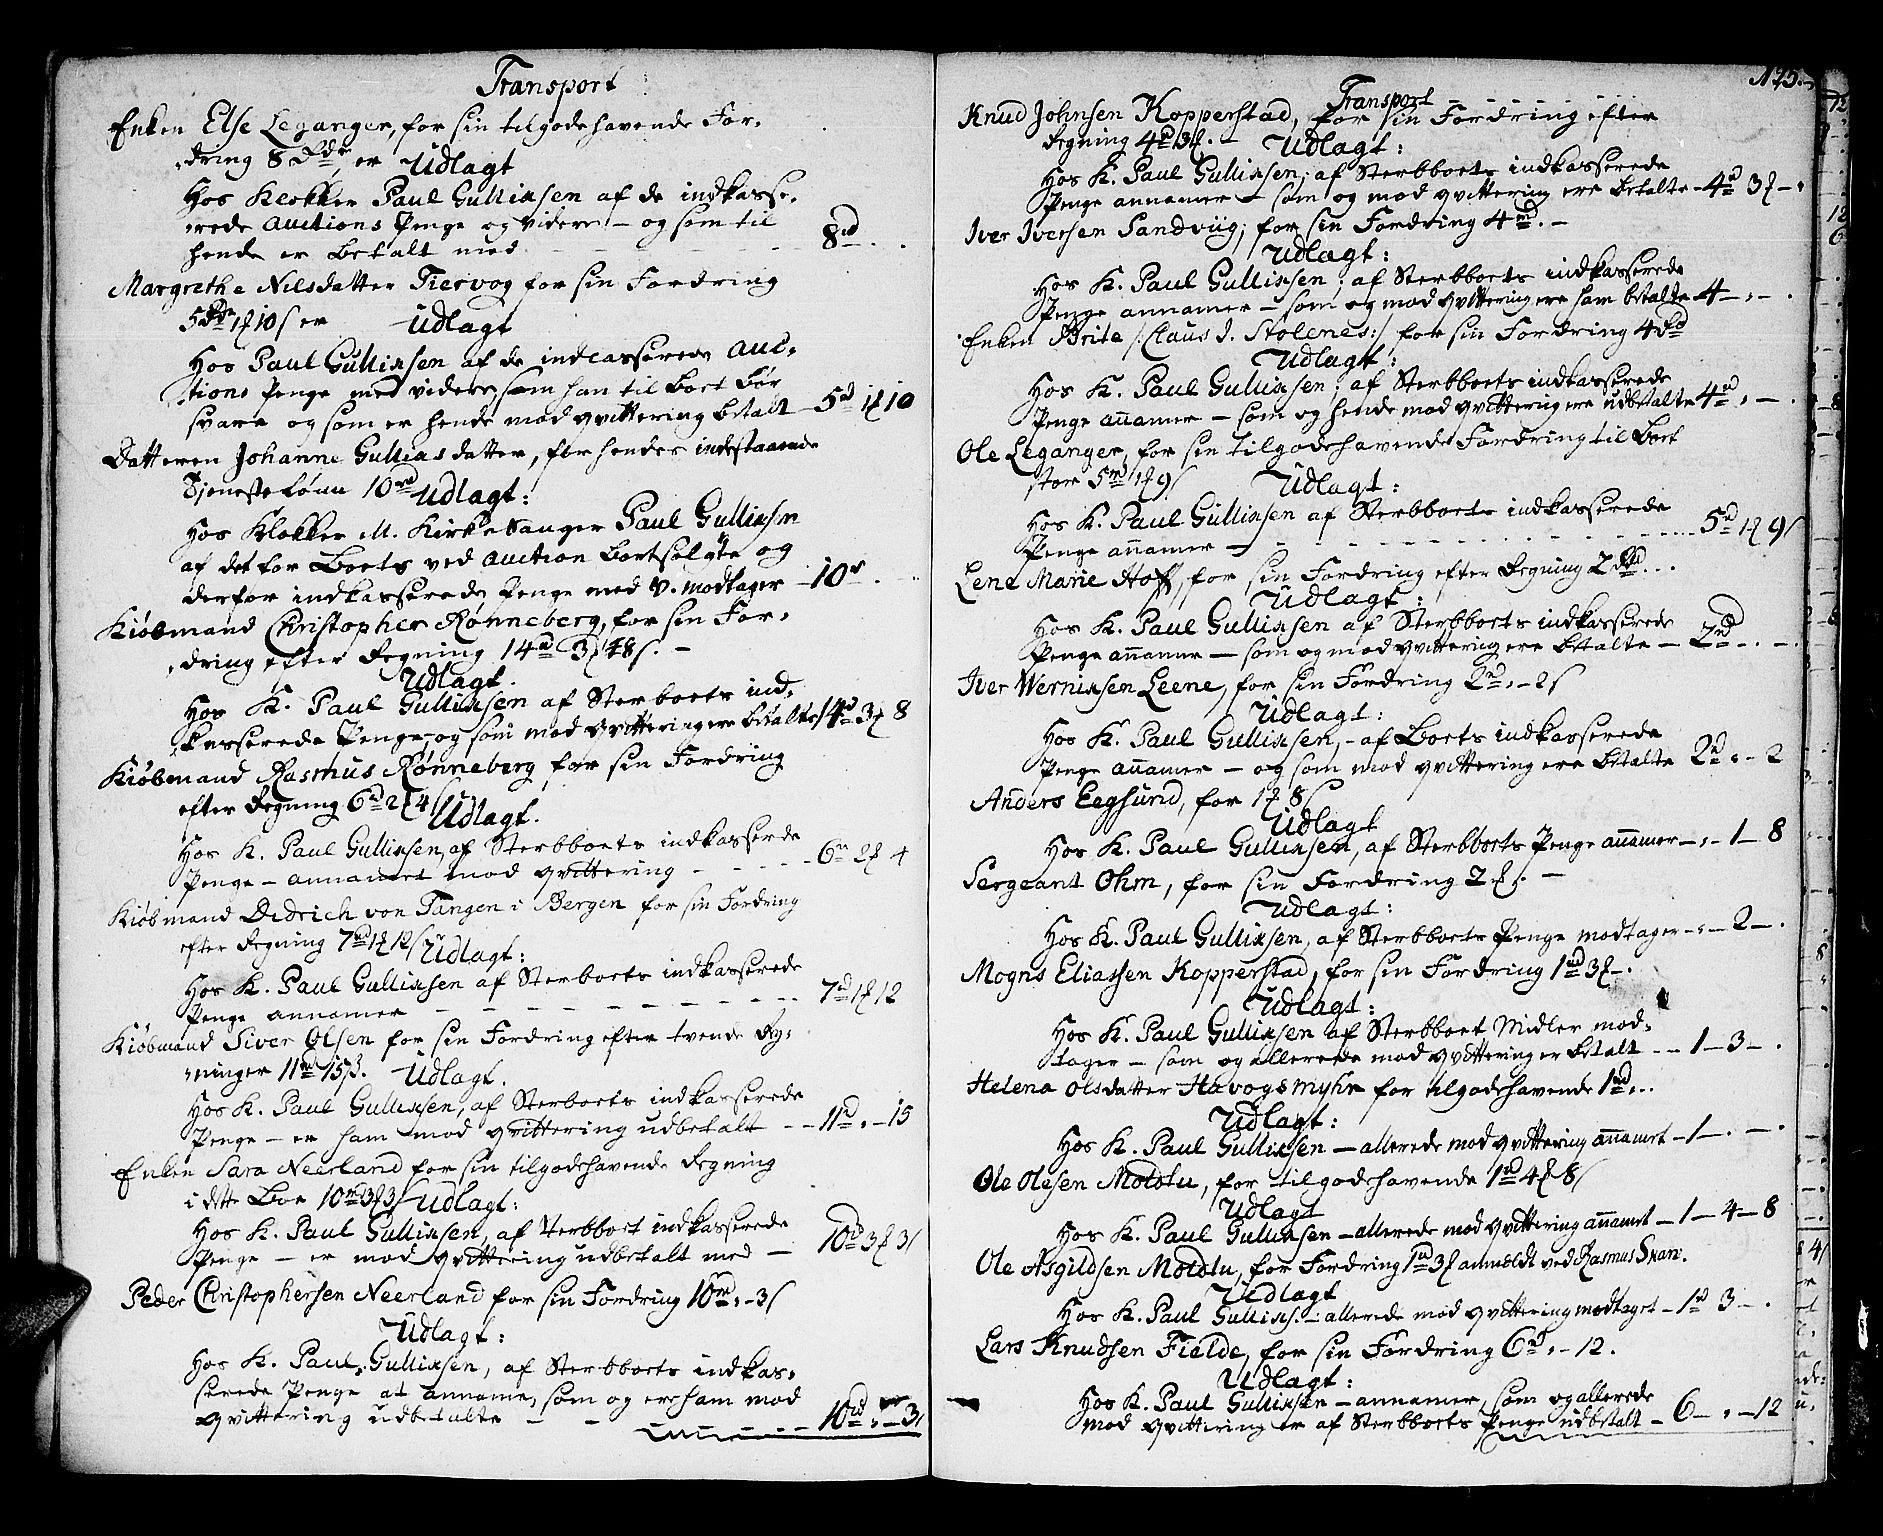 Transport
Enken Else Leganger, for sin tilgodehavende For-
dring 8 Rd er Udlagt
Hos Klokker Paul Gullixsen af de indkasse-
rede Auctions Penge og videre - og som til
hende er betalt med - 8rd
Margrethe Nilsdatter Tiervog for sin Fordring
5 Rd 1 10 s er Udlagt
Hos Paul Gullixsen af de indcasserede Auc-
tions Penge med videre, som han til Boet bør
svare og som er hende mod qvittering betalt - 5rd 1 10
Datteren Johanne Gulliasdatter, for hendes indestaaende
Tjenestelønn 10rd Udlagt:
Hos Klokker M. Kirkesanger Paul Gullixsen
af det for Boets ved Auction bortsolgte og
derfor indkasserede Penge med v. modtager - 10r
Kiøbmand Christopher Rønneberg, for sin For-
dring efter Regning 14rd 3 8 s. -
Udlagt.
Hos K. Paul Gullixsen af Sterbboets ind-
kasserede Penge, og som mod qvittering ere betalte 14rd 3 8
Kiøbmand Rasmus Rønneberg for sin Fordring
efter Regning 6rd 2 4 s Udlagt.
Hos K. Paul Gullixsen, af Sterbboets indkasserede
Penge - annamet mod qvittering - 6rd 2 4
Kiøbmand Didrich von Tangen i Bergen for sin Fordring
efter Regning 7rd 1 12 s Udlagt:
Hos K. Paul Gullixsen af Sterbboets indkasserede
Penge annamer - 7rd 1 12
Kiøbmand Siver Olsen for sin Fordring efter tvende Reg-
ninger 11rd 15 s. Udlagt.
Hos K. Paul Gullixsen, af Sterboets indkasserede
Penge - er ham mod qvittering udbetalt - - 11rd - 15
Enken Sara Neerland for sin tilgodehavende Regning
i dette Boe 10rd 3 3 s Udlagt:
Hos K. Paul Gullixsen, af Sterbboet indkasserede
Penge - er mod qvittering udbetalt med - 10rd 3 3 s
Peder Christophersen Neerland for sin Fordring 10rd - 3 s
Udlagt:
Hos K. Paul Gullixsen, af Sterbboets indkas-
serede Penge at anname, som og er ham mod
qvittering udbetalte - - 10rd - 3 s
125.
Transport
Knud Johnsen Kopperstad, for sin Fordring efter
Regning 4rd 3. - Udlagt:
Hos K. Paul Gullixsen; af Sterbboets indkasserede
Penge annamer - som og mod qvittering ere betalte - 4rd 3 -
Iver Iversen Sandviig; for sin Fordring 4rd. -
Udlagt:
Hos K. Paul Gullixsen; af Sterbboets indkasserede
Penge annamer - som og mod qvittering ere ham betalte - 4 - -
Enken Brite /: Claus J. Stolenes :/ for sin Fordring 4 Rd
Udlagt:
Hos K. Paul Gullixsen; af Sterbboets indkasserede
Penge annamer - som og hende mod qvittering ere udbetalte 4rd - .
Ole Leganger, for sin tilgodehavende Fordring til Boet
stor 5rd 1 9 s Udlagt:
Hos K. Paul Gullixsen af Sterbboets indkasserede
Penge annamer - 5rd 1 9 s
Lene Marie Hoff, for sin Fordring efter Regning 2 Rd
Udlagt:
Hos K. Paul Gullixsen af Sterbboets indkasserede
Penge annamer - som og mod qvittering ere betalte - 2rd - . -
Iver Wernixsen Leene, for sin Fordring 2rd - 2 s
Udlagt:
Hos K. Paul Gullixsen, - af Boets indkasserede
Penge annamer - og som mod qvittering ere betalte 2rd - 2
Anders Eegsund, for 1 8 s
Udlagt
Hos K. Paul Gullixsen, af Sterbboets Penge annamer - - 1 - 8
Sergeant Ohm, for sin Fordring 2. -
Udlagt:
Hos K. Paul Gullixsen, af Sterbboets Penge modtager - - 2 - .
Mogns Eliassen Kopperstad, for sin Fordring 1rd 3 - .
Udlagt:
Hos K. Paul Gullixsen af Sterbboet Midler mod-
tager - som og allerede mod qvittering er betalt - - 1 - 3 - .
Helena Olsdatter Havogsmyhr for tilgodehavende 1rd
Udlagt:
Hos K. Paul Gullixsen - allerede mod qvittering annamet - 1 - . - .
Ole Olesen Moldtu, for tilgodehavende 1rd 4 8 s
Udlagt
Hos K. Paul Gullixsen - allerede mod qvittering annamet - 1 - 4 - 8
Ole Asgildsen Moldtu, for Fordring 1rd 3 anmeldt ved Rasmus Skan.
Udlagt
Hos K. Paul Gullixs. - allerede mod qvittering modtaget - 1rd 3 - .
Lars Knudsen Fielde, for sin Fordring 6rd - 12.
Udlagt:
Hos K. Paul Gullixsen - annamer, som og allerede
mod qvittering er af Sterbboets Penge udbetalt - 6 - - 12